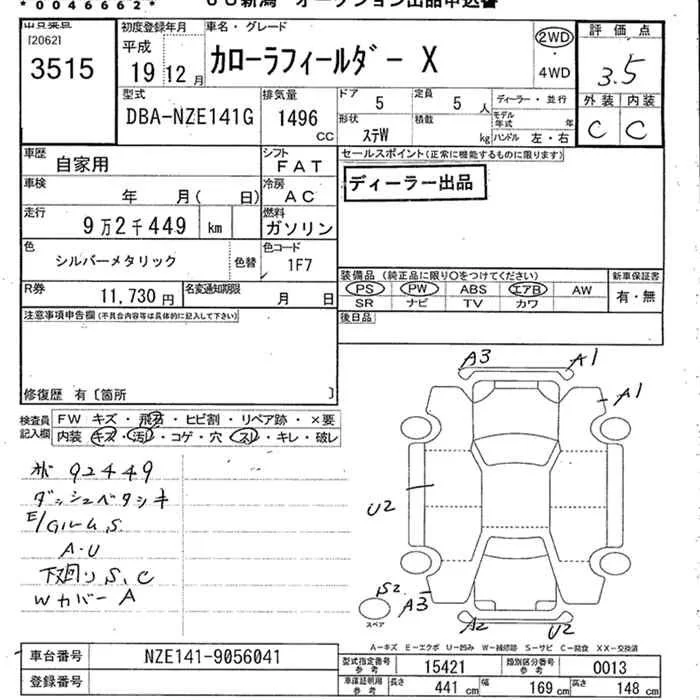 *0046662* UU新潟 オークション出品申込書
出品業者 初度登録年月 車名・グレード 評価点
[2062] 平成 2WD
3515 19 12月 カローラフィールダー X 4WD 3.5
外装 内装
C C
型式 排気量 ドア 5 定員 5人 ディーラー・並行
DBA-NZE141G 1496 CC 形状 ステW 積載 kg モデル年式 年
ハンドル 左・右
車歴 自家用 シフト FAT セールスポイント(正常に機能するものに限ります)
車検 年 月( 日) 冷房 AC ディーラー出品
走行 9万2千449 km 燃料 ガソリン
色 シルバーメタリック 色替 色コード 1F7
装備品(純正品に限り○をつけてください) 新車保証書
R券 11,730円 名変通知期限 月 日
PS PW ABS エアB AW 有・無
SR ナビ TV カワ
注意事項申告欄(不具合内容等は具体的に記入して下さい) 後日品
修復歴 有〔箇所 〕
検査員記入欄 FW キズ・飛石・ヒビ割・リペア跡・×要
内装 キズ・汚レ・コゲ・穴・スレ・キレ・破レ
A3 A1
A1
92449
ダッシュベタツキ
E/Gルーム S
U2
A・U
下廻り S、C
Wカバー A
S2 A3
スペア
A2 U2
A-キズ E-エクボ U-凹み W-補修跡 S-サビ C-腐食 XX-交換済
車台番号 NZE141-9056041
型式指定番号 参考 15421 類別区分番号 参考 0013
登録番号
車庫証明用 参考 長さ 441 cm 幅 169 cm 高さ 148 cm